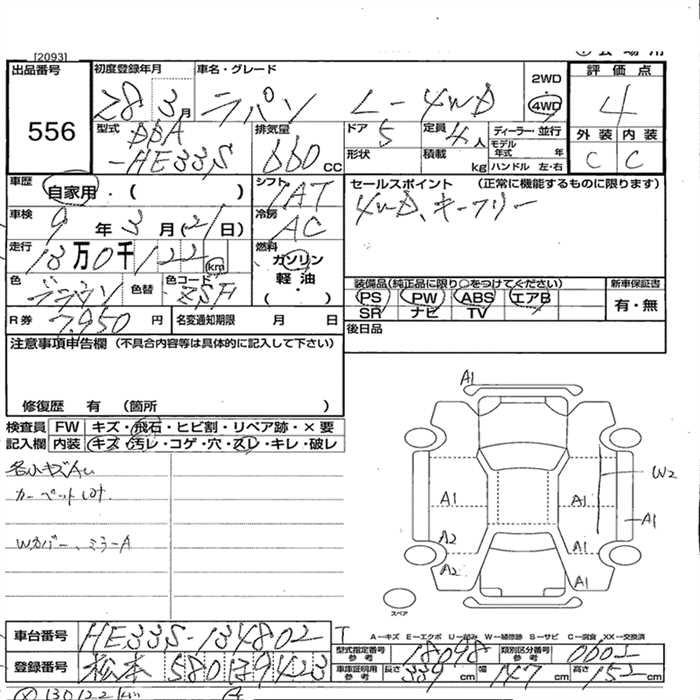 [2093]
出品番号 初度登録年月 車名・グレード 2WD 評価点
556 28 3月 ラパン L-4WD 4WD 4
型式 DBA-HE33S 排気量 660cc ドア 5 定員 4人 ディーラー・並行 外装 内装
形状 積載 kg モデル年式 年 ハンドル 左・右 C C
車歴 自家用・( ) シフト IAT セールスポイント (正常に機能するものに限ります)
車検 9年3月( 日) 冷房 AC 4WD、キーフリー
走行 13万0千122 km 燃料 ガソリン 軽油 ・
色 ブラウン 色替 色コード 装備品(純正品に限り○をつけてください) 新車保証書
PS PW ABS エアB 有・無
SR ナビ TV
R券 7,950円 名変通知期限 月 日 後日品
注意事項申告欄 (不具合内容等は具体的に記入して下さい)
修復歴 有 (箇所 )
検査員 FW キズ・飛石・ヒビ割・リペア跡・×要
記入欄 内装 キズ・汚レ・コゲ・穴・スレ・キレ・破レ
カーペット
Wカバー、ミラーA
A1
W2
A1 A1 A1
A2 A1
A2 A1
スペア
A-キズ E-エクボ U-凹み W-補修跡 S-サビ C-腐食 XX-交換済
車台番号 HE33S-134802 型式指定番号 参考 18048 類別区分番号 参考
登録番号 松本 580 139423 車庫証明用 参考 長さ 339cm 幅 147cm 高さ 152cm
130122km